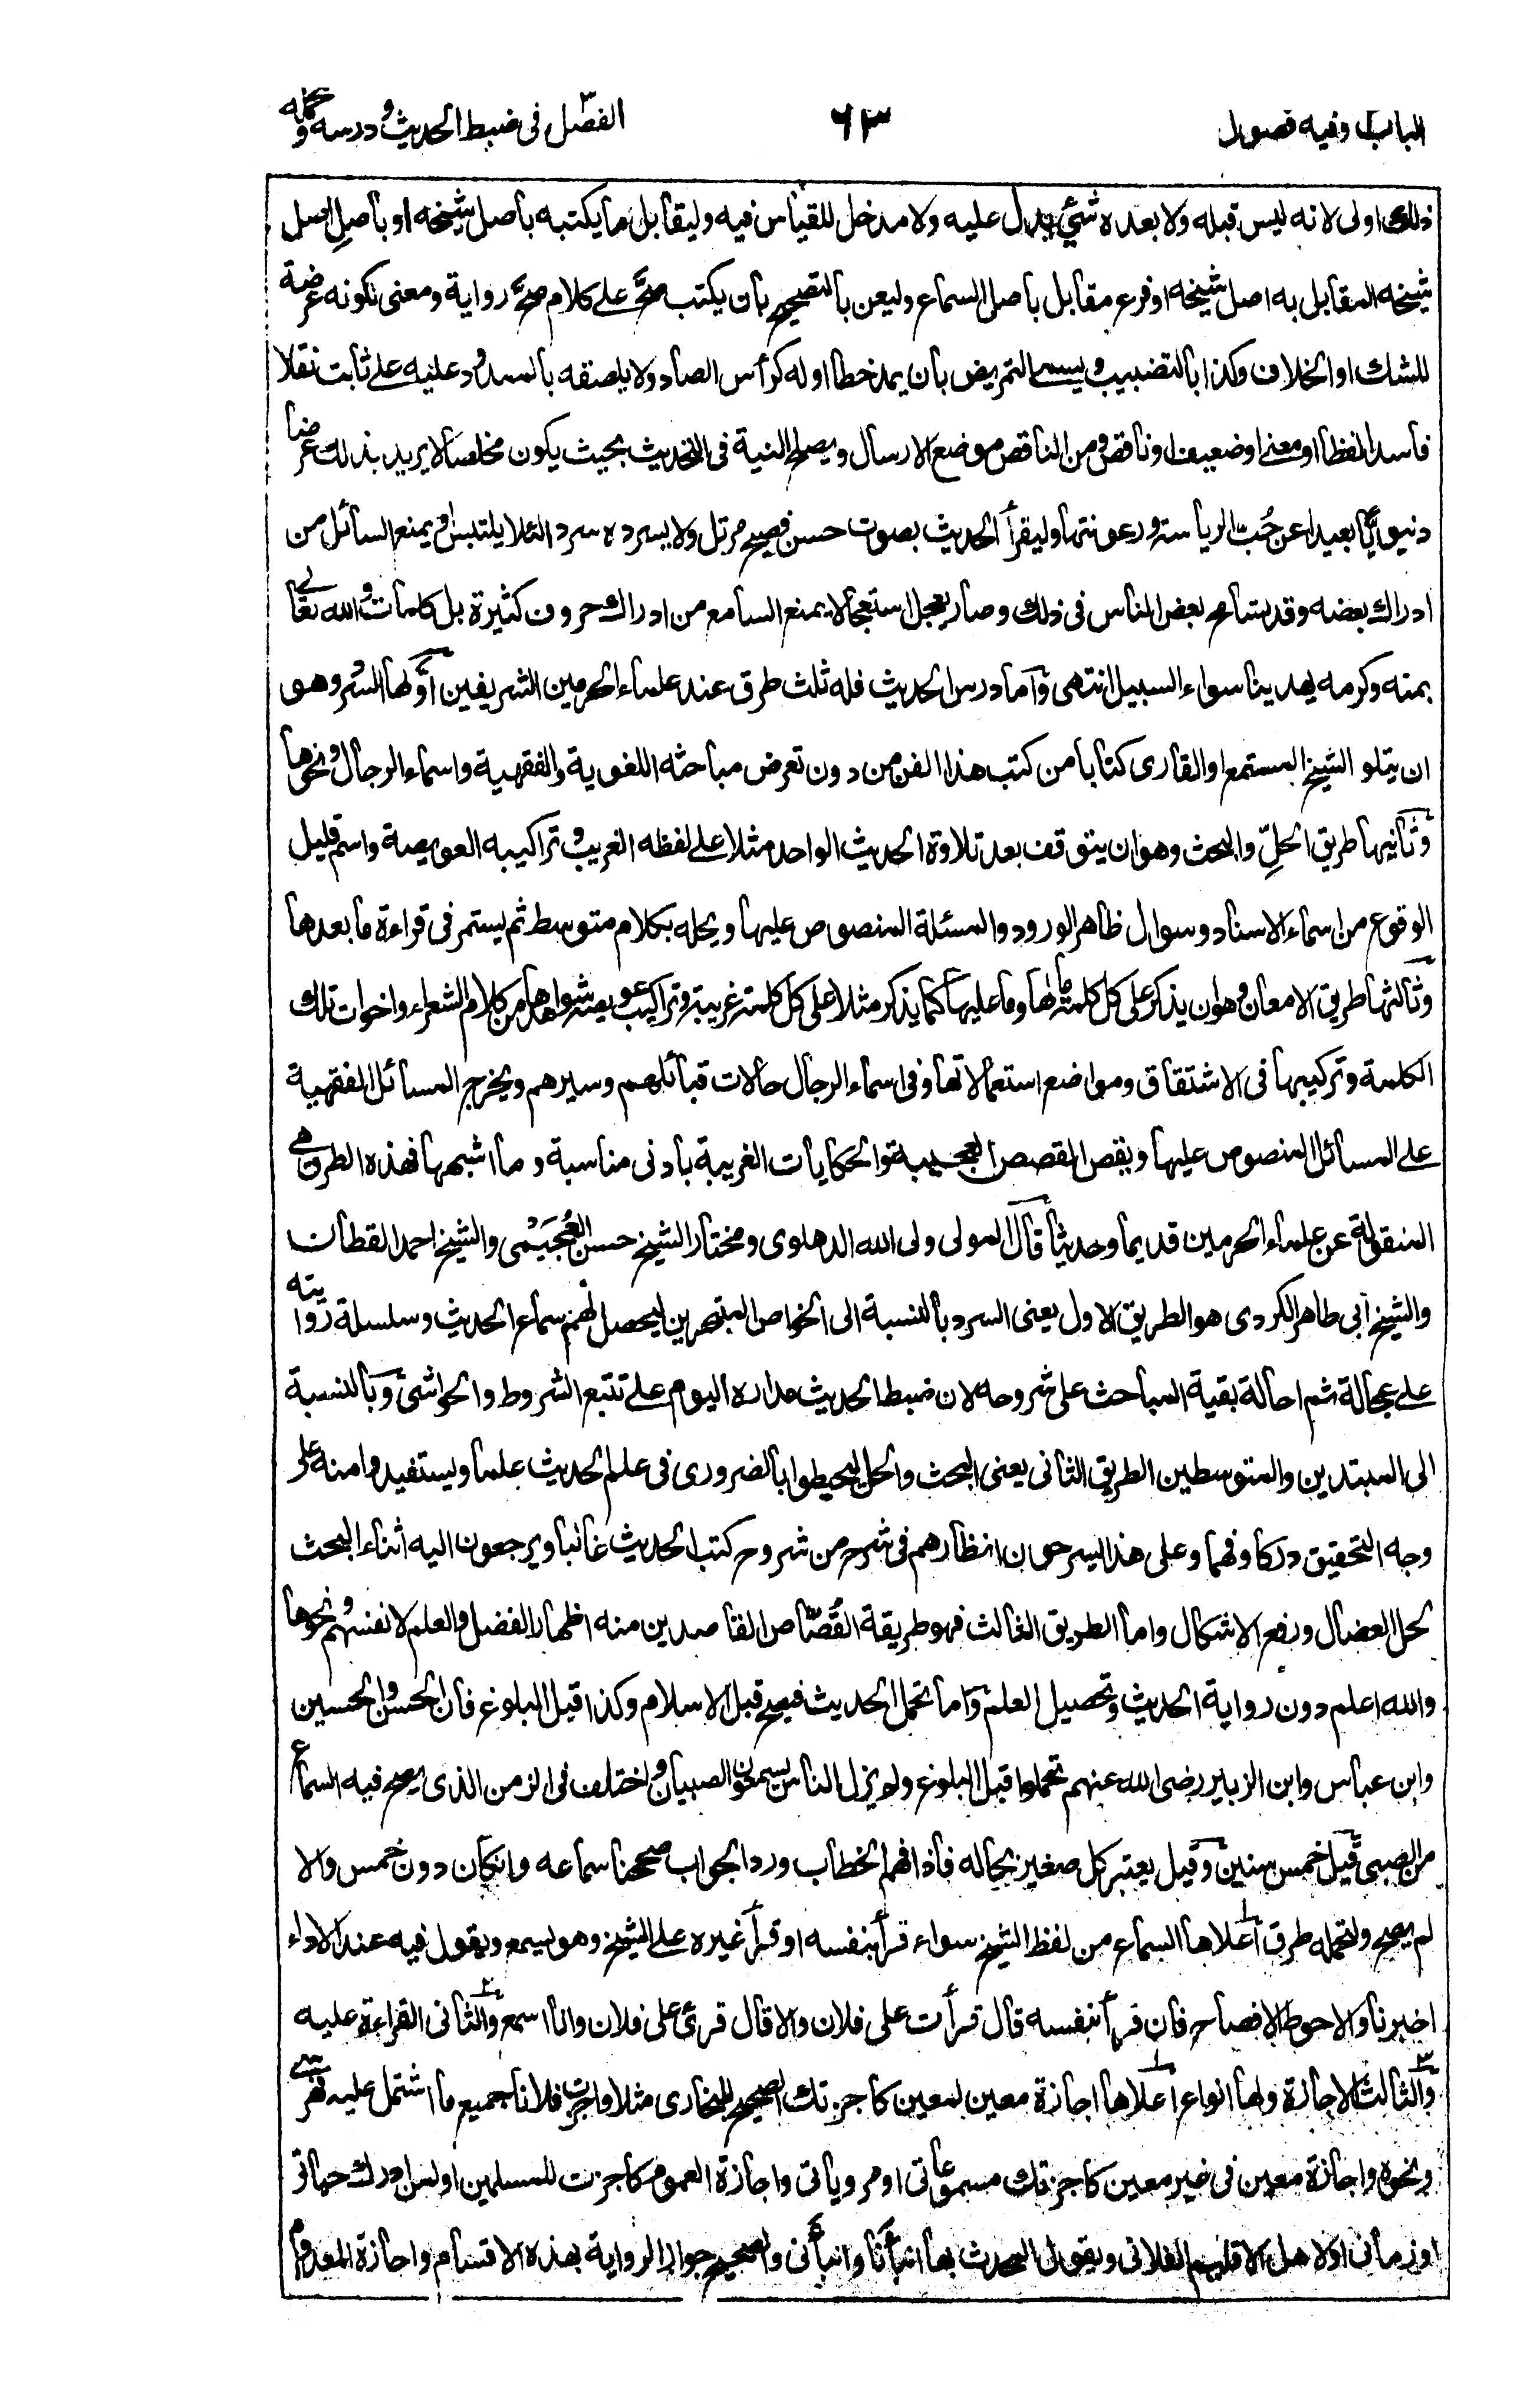 الباب وفيه فصول
٦٣
الفصل ٣ فى ضبط الحديث ودرسه وتحمله
ذلك اولى لانه ليس قبله ولا بعده شئ يدل عليه ولا مدخل للقياس فيه وليقابل ما يكتبه بأصل شيخه او بأصل اصل
شيخه المقابل به اصل شيخه او فرع مقابل بأصل السماع وليعن بالتصحيح بأن يكتب صحَّ على كلام صحَّ رواية ومعنى لكونه عرضة
للشك او الخلاف وكذا بالتضبيب ويسمى التمريض بأن يمد خطا اوله كرأس الصاد ولا يلصقه بالممدود عليه على ثابت نقلا
فاسد لفظا او معنى او ضعيف او ناقص ومن الناقص موضع الارسال ويصلح النية فى التحديث بحيث يكون مخلصا لا يريد بذلك عرضا
دنيويًّا بعيدا عن حُبّ الرياسة ورعونتها وليقرأ الحديث بصوت حسن فصيح مرتل ولا يسرده سردا لئلا يلتبس او يمنع السائل من
ادراك بعضه وقد تسامح بعض الناس فى ذلك وصار يعجل استعجالا يمنع السامع من ادراك حروف كثيرة بل كلمات والله تعالى
بمنه وكرمه يهدينا سواء السبيل انتهى وآما درس الحديث فله ثلث طرق عند علماء الحرمين الشريفين اوَّلها السرد وهو
ان يتلو الشيخ المستمع او القارى كتابا من كتب هذا الفن من دون تعرض مباحثه اللغوية والفقهية واسماء الرجال ونحوها
وثانيها طريق الحلّ والبحث وهو ان يتوقف بعد تلاوة الحديث الواحد مثلا على لفظه الغريب وتراكيبه العويصة واسم قليل
الوقوع من اسماء الاسناد وسوال ظاهر الورود والمسئلة المنصوص عليها ويحله بكلام متوسط ثم يستمر فى قراءة ما بعدها
وثالثها طريق الامعان وهوان يذكر على كل كلمة ما لها وما عليها كما يذكر مثلا على كل كلمة غريبة وتراكيب عويصة شواهد من كلام الشعراء واخوات تلك
الكلمة وتركيبها فى الاشتقاق ومواضع استعمالاتها وفى اسماء الرجال حالات قبائلهم وسيرهم ويخرج المسائل الفقهية
على المسائل المنصوص عليها ويقص القصص العجيبة والحكايات الغريبة بأدنى مناسبة وما اشبهها فهذه الطرق هى
المنقولة عن علماء الحرمين قديما وحديثا قال المولى ولى الله الدهلوى ومختار الشيخ حسن العُجَيْمى والشيخ احمد القطان
والشيخ ابى طاهر الكردى هو الطريق الاول يعنى السرد بالنسبة الى الخواص المتبحرين ليحصل لهم سماع الحديث وسلسلة روايته
على عجالة ثم احالة بقية المباحث على شروحه لان ضبط الحديث مداره اليوم على تتبع الشروط والحواشى وبالنسبة
الى المبتدين والمتوسطين الطريق الثانى يعنى البحث والحل ليحيطوا بالضرورى فى علم الحديث علما ويستفيدوا منه على
وجه التحقيق دركا وفهما وعلى هذا يسرحون انظارهم فى شرح من شروح كتب الحديث غالبا ويرجعون اليه اثناء البحث
لحل العضال ورفع الاشكال واما الطريق الثالث فهو طريقة القُصَّاص القاصدين منه اظهار الفضل والعلم لانفسهم ونحوها
والله اعلم دون رواية الحديث وتحصيل العلم وآما تحمل الحديث فيصح قبل الاسلام وكذا قبل البلوغ فان الحسن والحسين
وابن عباس وابن الزبير رضى الله عنهم تحملوا قبل البلوغ ولم يزل الناس يسمعون الصبيان واختلف فى الزمن الذى يصح فيه السماع
من الصبى قيل خمس سنين وقيل يعتبر كل صغير بحاله فاذا فهم الخطاب ورد الجواب صححنا سماعه وان كان دون خمس والا
لم يصح ولتحمله طرق اعلاها السماع من لفظ الشيخ سواء قرأ بنفسه او قرأ غيره على الشيخ وهو يسمع ويقول فيه عند الاداء
اخبرنا والاحوط الافصاح فان قرأ بنفسه قال قرأت على فلان والا قال قرئ على فلان وانا اسمع والثانى القراءة عليه
والثالث الاجازة ولها انواع اعلاها اجازة معين لمعين كاجزتك الصحيح للبخارى مثلا واجزت فلانا جميع ما اشتمل عليه فهرستى
ونحوه واجازة معين فى غير معين كاجزتك مسموعاتى او مروياتى واجازة العموم كاجزت للمسلمين او لمن ادرك حياتى
او زمانى او لاهل الاقليم الفلانى ويقول المحدث بها انبأنا وانبأنى والصحيح جواز الرواية بهذه الاقسام واجازة المعدوم